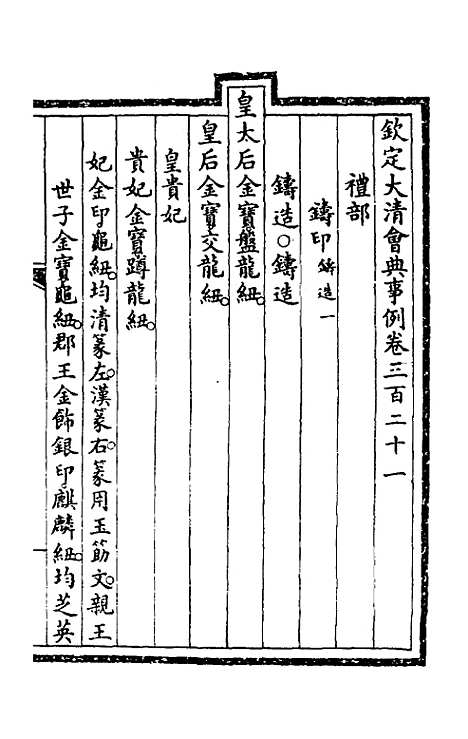 欽定大清會典事例卷三百二十一
禮部
鑄印鑄造一
鑄造○鑄造
皇太后金寶盤龍紐。
皇后金寶交龍紐。
皇貴妃
貴妃金寶蹲龍紐。
妃金印龜紐。均清篆左。漢篆右。篆用玉筯文。親王
世子金寶龜紐。郡王金飾銀印麒麟紐。均芝英